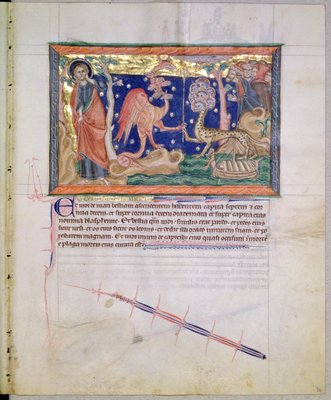 Et vidi de mari bestiam ascendentem habentem capita septem et cor
nua decem. et super cornua decem diademata et super capita eius
nomina blasphemie. Et bestia quam vidi similis erat pardo. et pedes eius
sicut ursi. et os eius sicut os leonis. et dedit illi draco virtutem suam. et po
testatem magnam. Et vidi unum de capitibus eius quasi occisum in morte
et plaga mortis eius curata est